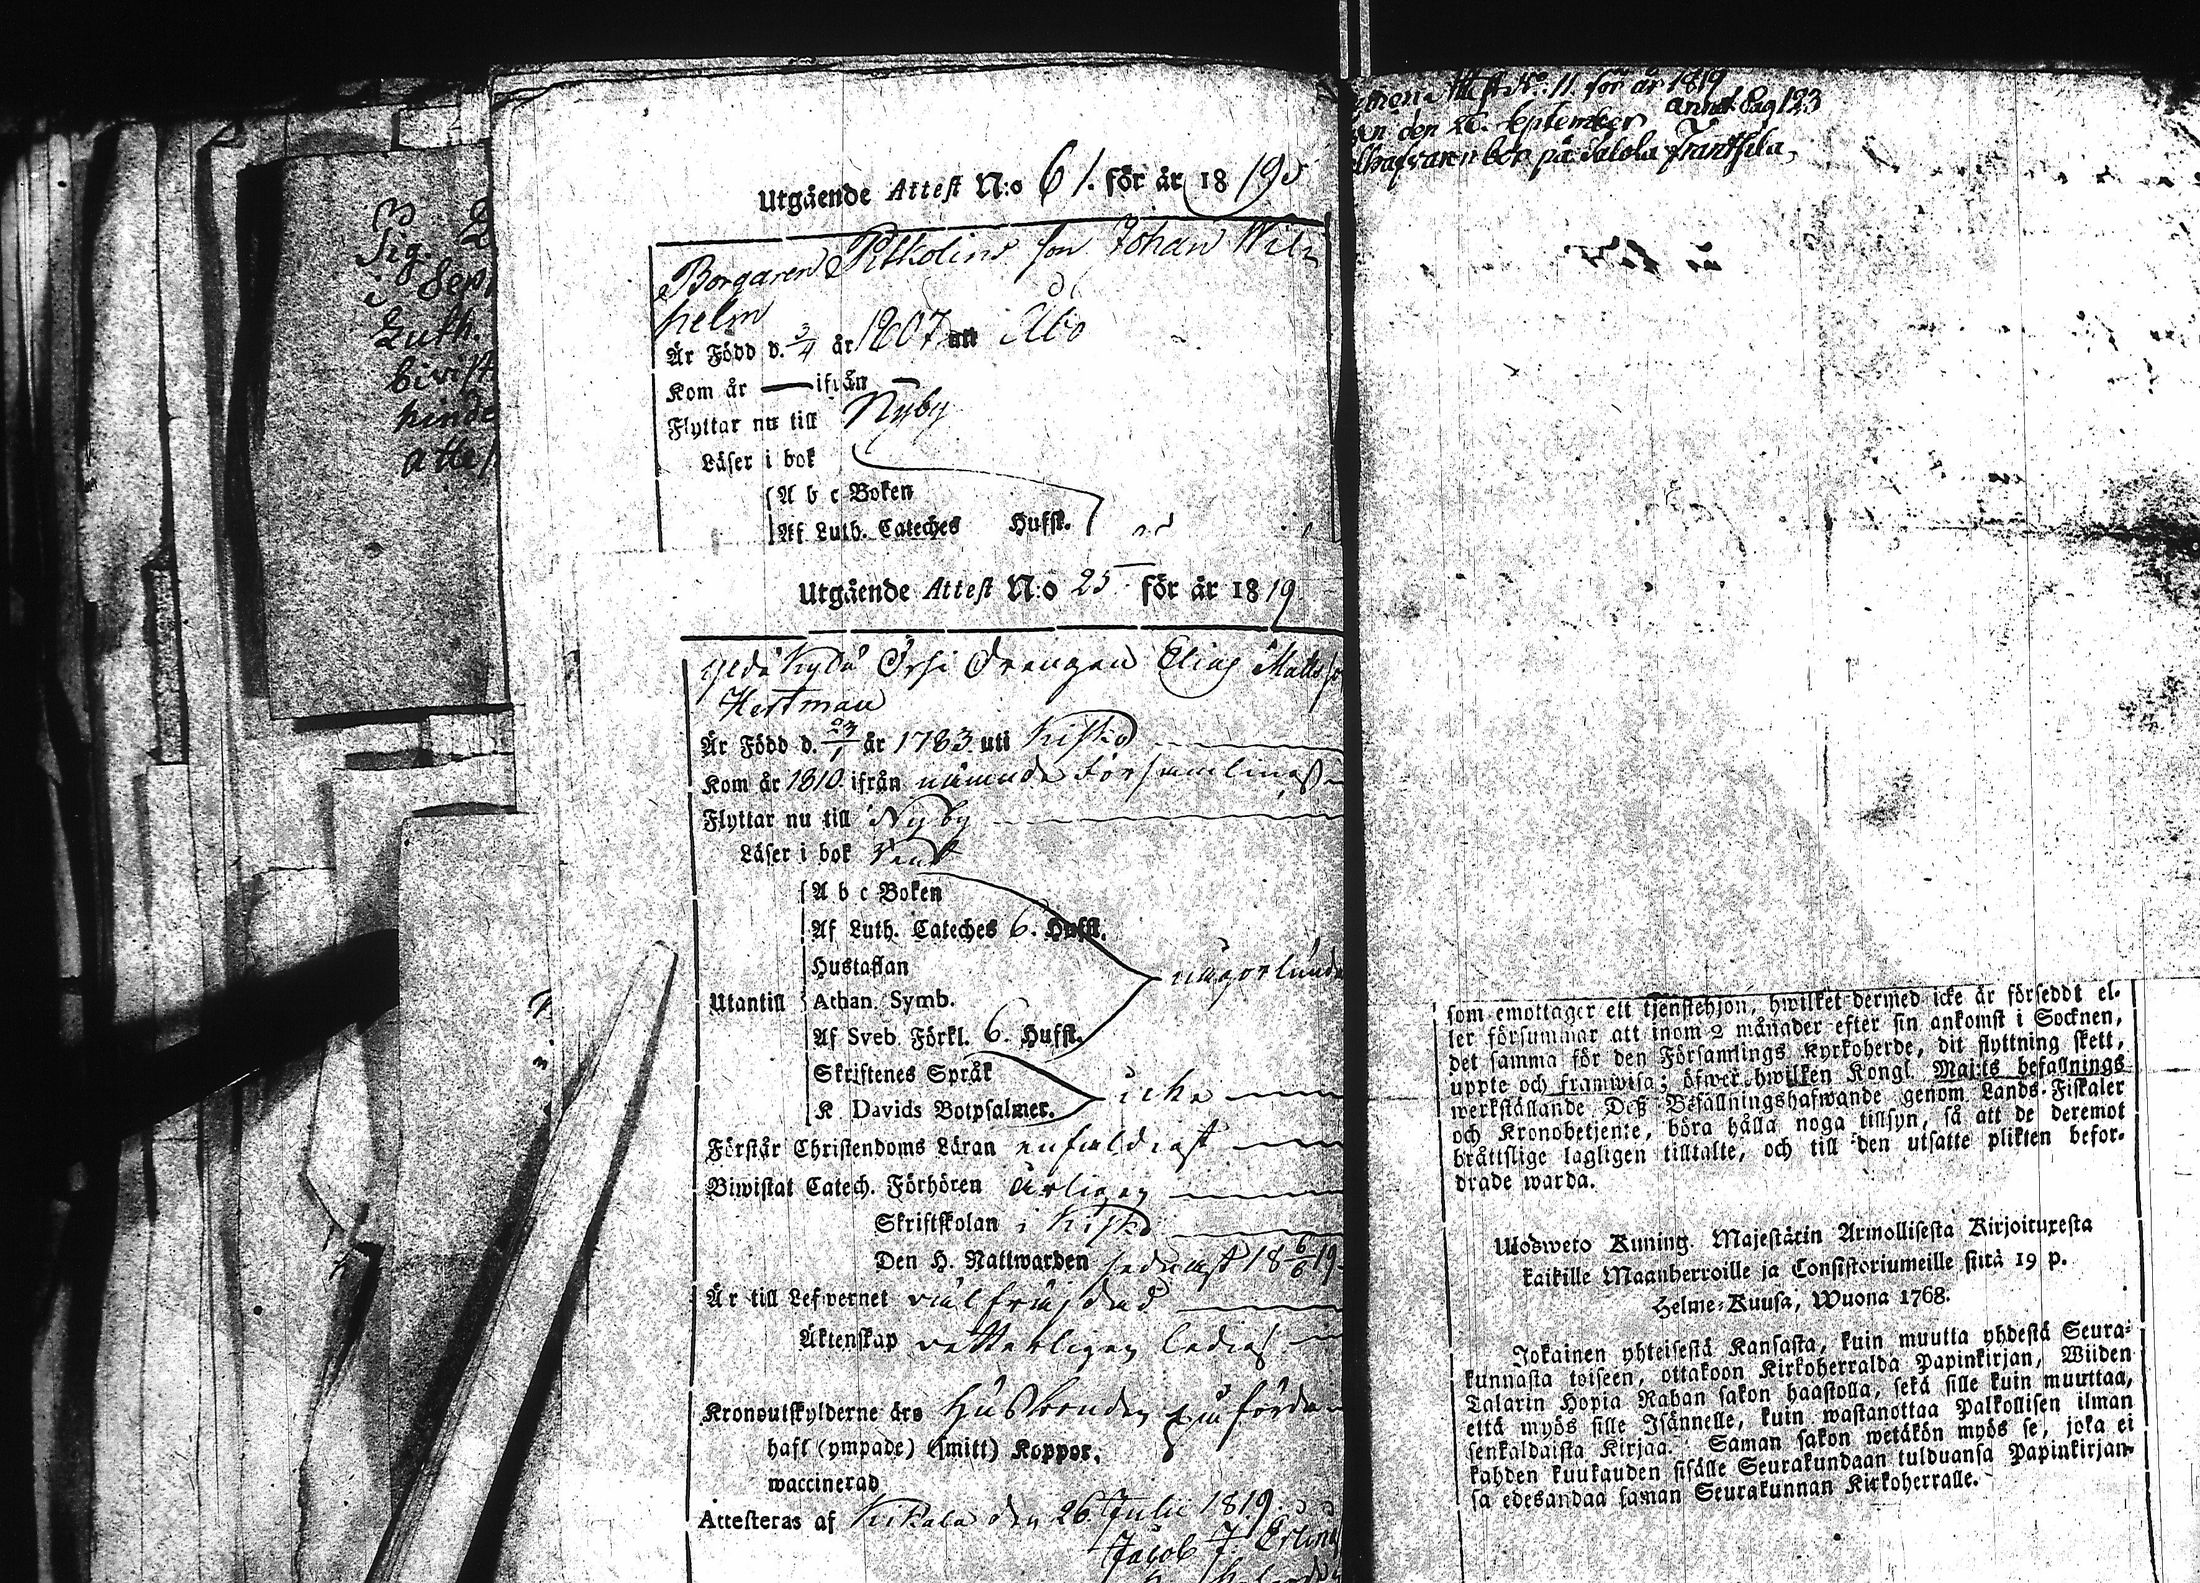 Sig.
i Sep
Luth.
bivist
kinde
attes
Utgående Attest N:o 61. för år 1819
Borgaren Pitkolins son Johan Wil-
helm
Är Född d. 3/4 år 1807 uti Åbo
Kom år — ifrån —
Flyttar nu till Nyby
Läser i bok
A b c Boken
Af Luth. Cateches Hufst.
Utgående Attest N:o 25 för år 1819
Yldä Kylä Drängen Elias Matts
Hertman
Är Född d. 23/1 år 1783 uti Kisko
Kom år 1810 ifrån nämnde Församling
Flyttar nu till Nyby
Läser i bok
A b c Boken
Af Luth. Cateches 6. Hufst.
Hustaflan
någorlunda
Utantill Athan. Symb.
Af Sveb. Förkl. 6. Hufst.
Skriftenes Språk
icke
K Davids Botpsalmer.
Förstår Christendoms Läran enfaldigt
Biwistat Catech. Förhören årligen
Skriftskolan i Kisko
Den H. Nattwarden sednast 18 6/6 19.
Är till Lefwernet välfräjdad
Äktenskap veterligen ledig
Kronoutskylderne äro Husbonden påförda
haft (ympade) (smitt) Koppor.
waccinerad
Attesteras af Kiikala den 26 Julii 1819.
Jacob J.
Attest No. 11. för år 1819
den 26. September annot. Pag 123
bor på Salola Frantsila
som emottager ett tjenstehjon, hwilket dermed icke är förseddt el-
ler försummar att inom 2 månader efter sin ankomst i Socknen,
det samma för den Församlings Kyrkoherde, dit flyttning skett,
uppte och framwisa; öfwer hwilken Kongl. Maj:ts befallnings
werkställande Deß Befallningshafwande genom Lands-Fiskaler
och Kronobetjente, böra hålla noga tillsyn, så att de deremot
bråttslige lagligen tilltalte, och till den utsatte plikten befor-
drade warda.
Ulosweto Kuning. Majestätin Armollisesta Kirjoituxesta
kaikille Maanherroille ja Consistoriumeille siitä 19 p.
Helme-Kuusa, Wuona 1768.
Jokainen yhteisestä Kansasta, kuin muutta yhdestä Seura-
kunnasta toiseen, ottakoon Kirkoherralda Papinkirjan, Wiiden
Talarin Hopia Rahan sakon haastolla, sekä sille kuin muuttaa,
että myös sille Isännelle, kuin wastanottaa Palkollisen ilman
senkaldaista Kirjaa. Saman sakon wetäkön myös se, joka ei
kahden kuukauden sisälle Seurakundaan tulduansa Papinkirjan-
sa edesandaa saman Seurakunnan Kirkoherralle.